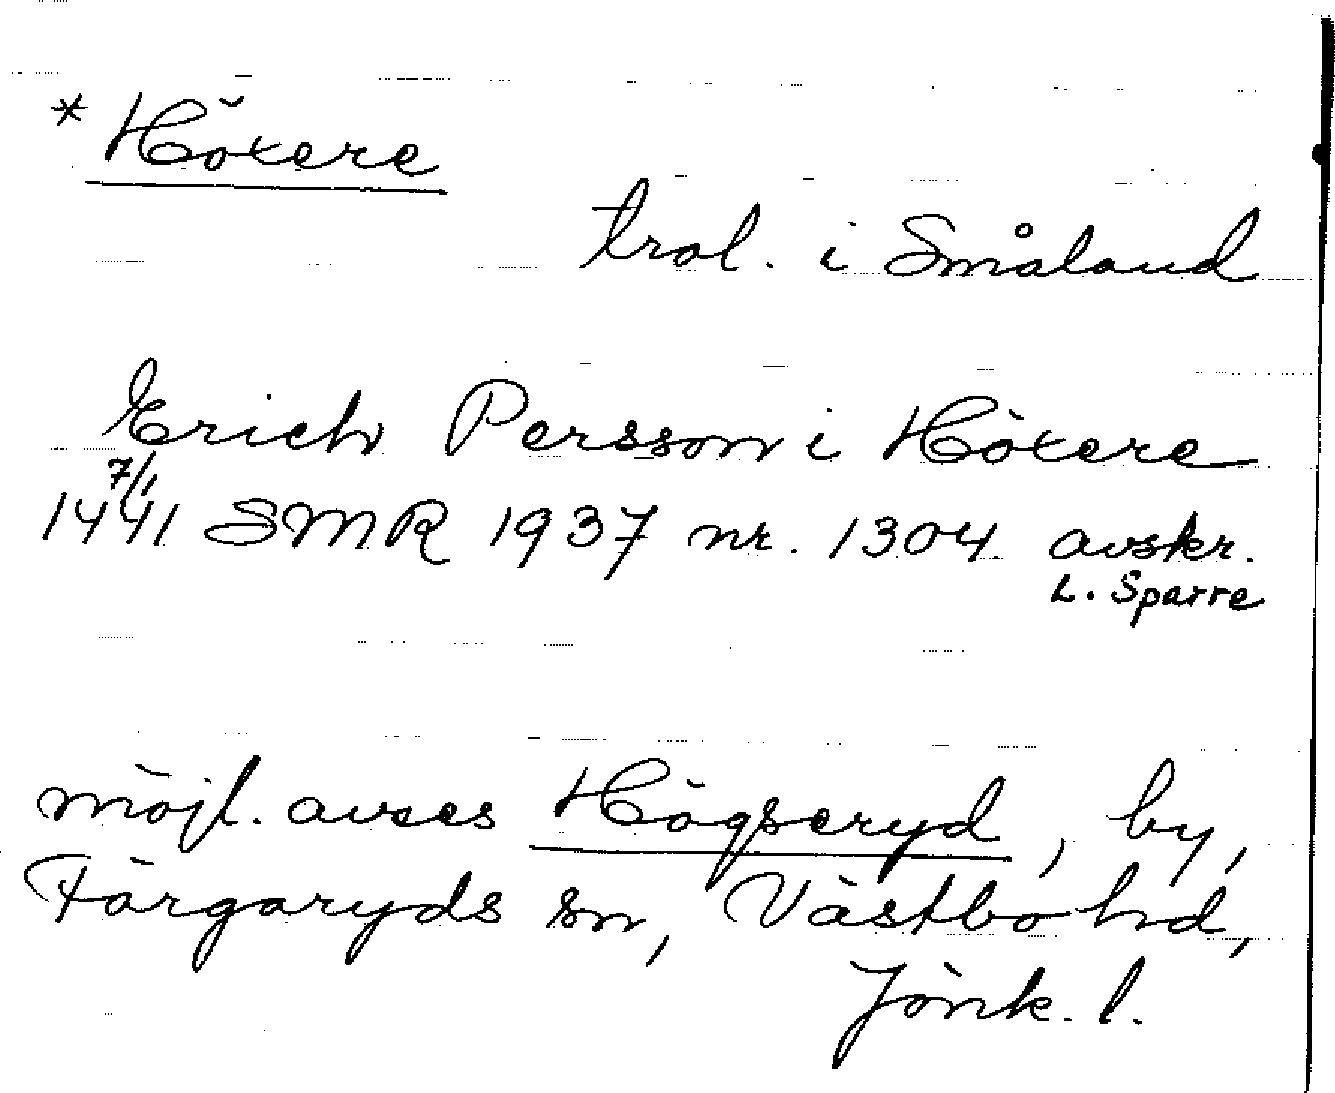 * Höxere
trol. i Småland
Erich Persson i Höxere
7/1
1441 SMR 1937 nr. 1304 avskr.
L. Sparre
möjl. avses Högseryd, by,
Färgaryds sn, Västbo hd,
Jönk. l.